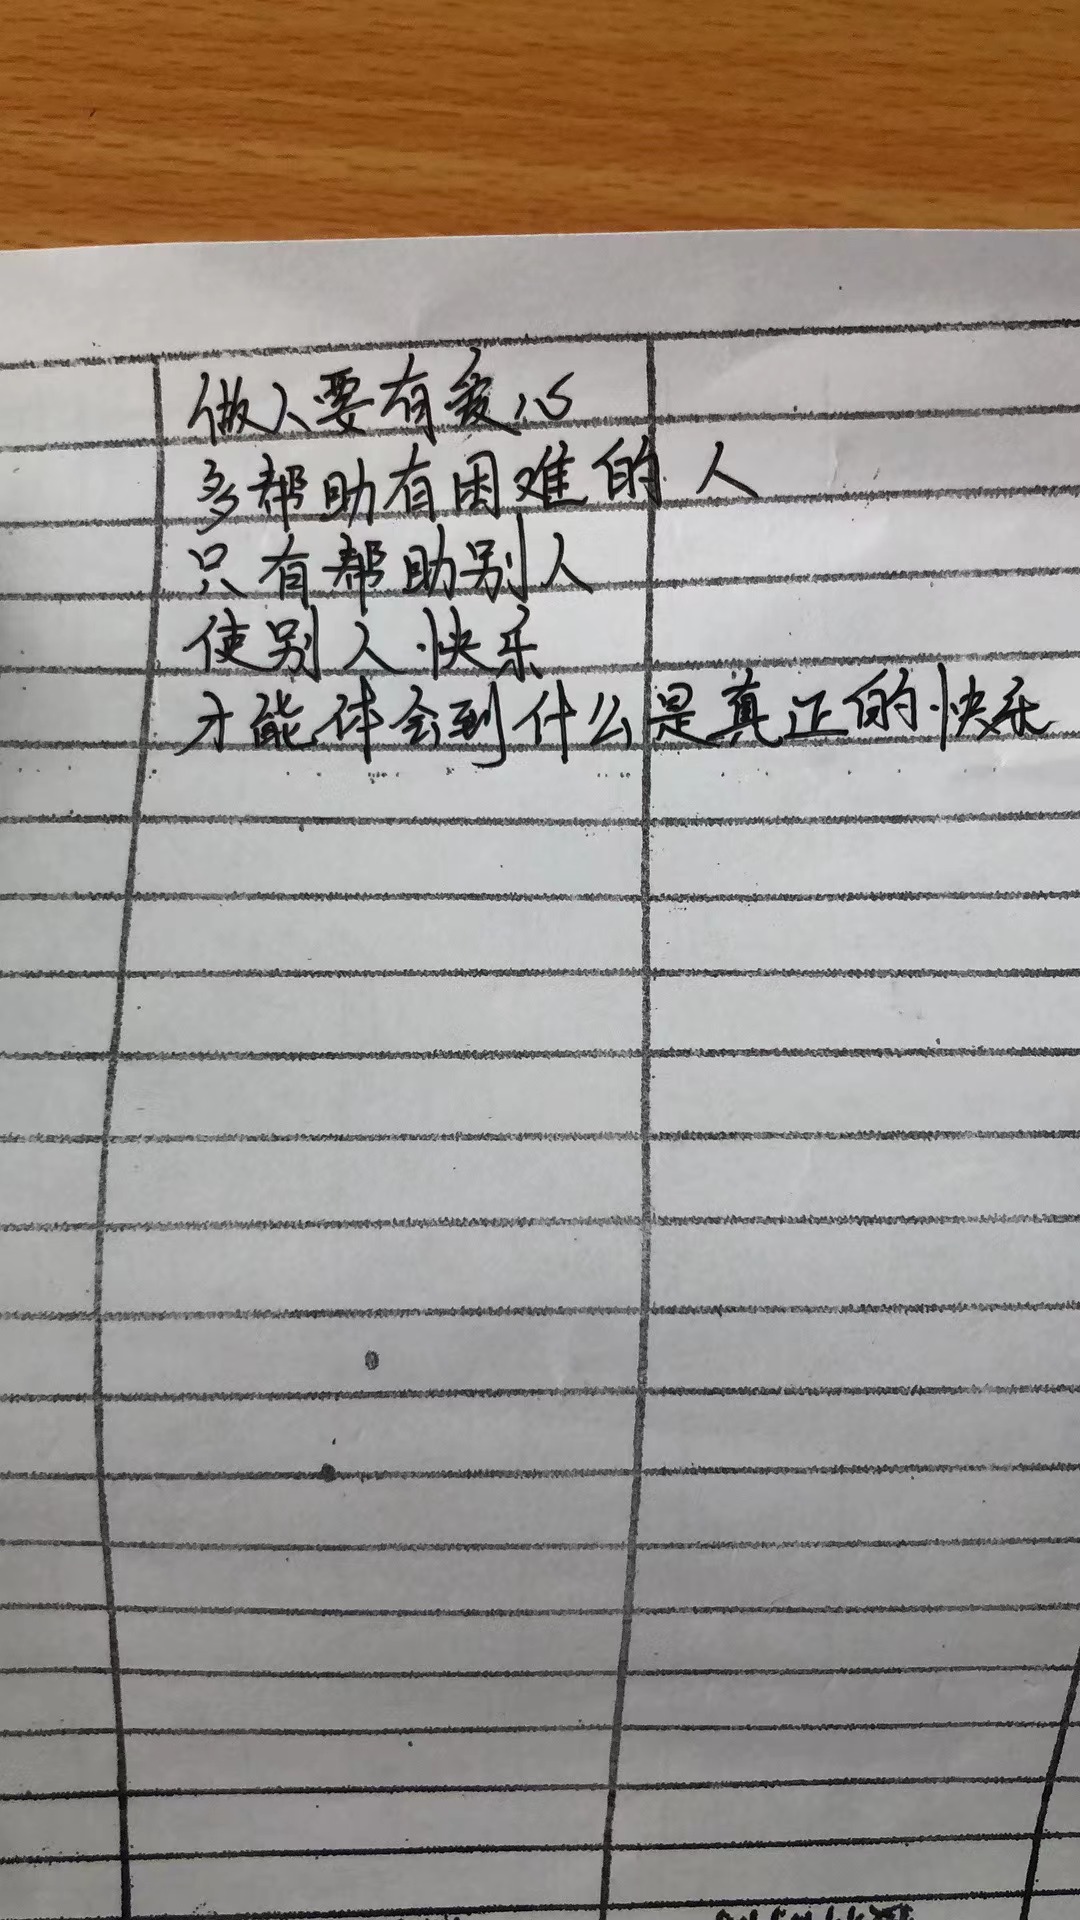 做人要有爱心
多帮助有困难的人
只有帮助别人
使别人快乐
才能体会到什么是真正的快乐